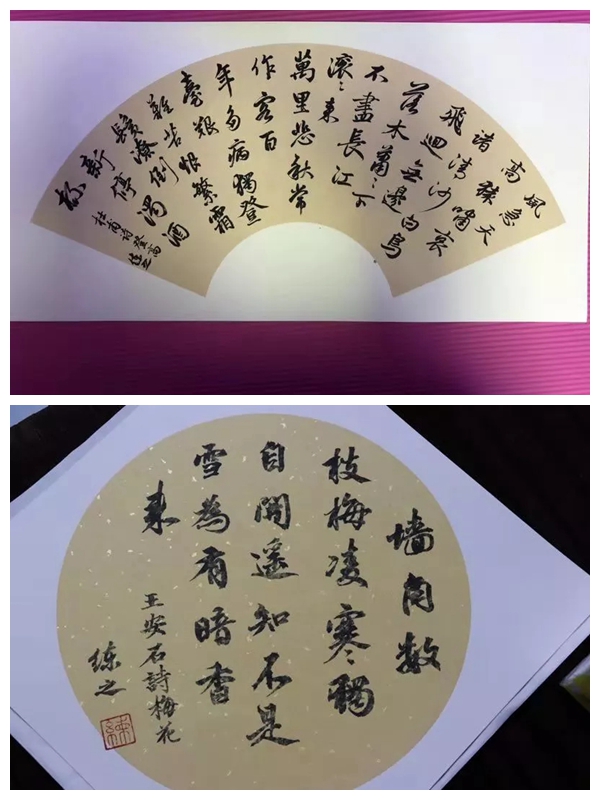 風急天
高猿嘯哀
渚清沙白鳥
飛迴無邊
落木蕭〻下
不盡長江
滚〻来
萬里悲秋常
作客百
年多病獨登
臺艱
難苦恨繁霜
鬢潦倒
新停濁酒
杯
杜甫詩登高
墙角数
枝梅凌寒獨
自開遥知不是
雪為有暗香
来
王安石詩梅花
练之